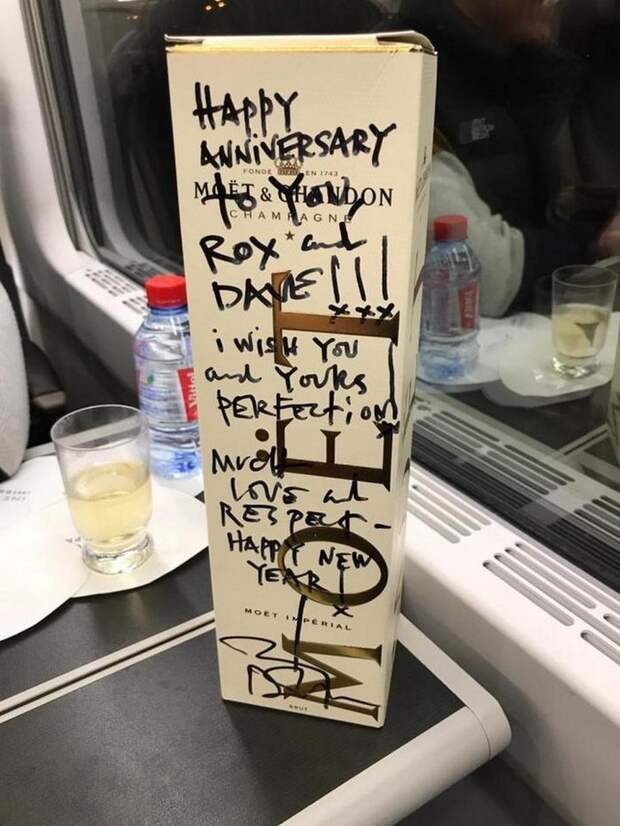 HAPPY
ANNIVERSARY
FONDÉ EN 1743
to You,
MOËT & CHANDON
CHAMPAGNE
ROX and
DAVE!!!
xxx
i WISH YOU
and YOURS
PERFECTION!
MUCH
LOVE and
RESPECT -
HAPPY NEW
YEAR!
x
MOËT IMPÉRIAL
BRUT
MOËT
Vittel